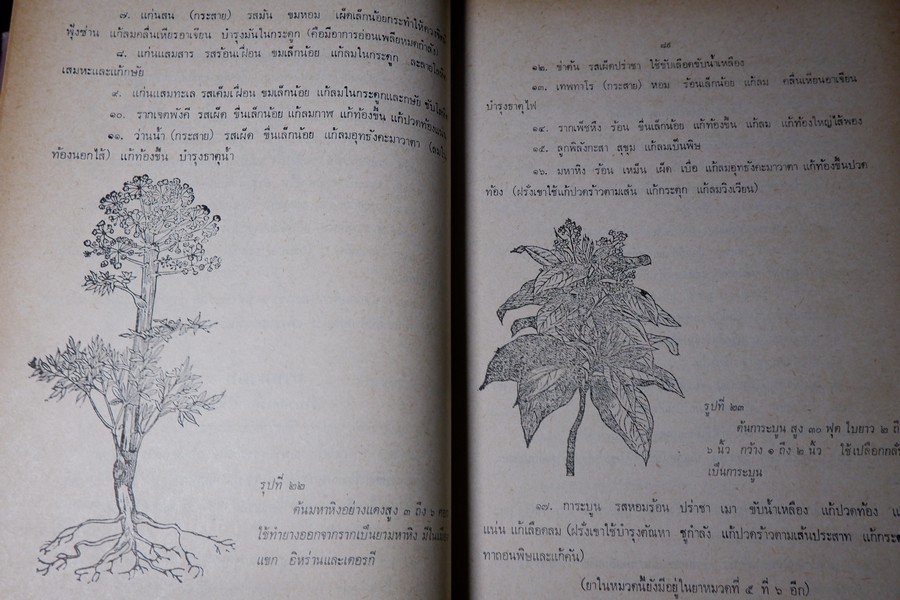 ๗. แก่นสน (กระสาย) รสมัน ขมหอม เผ็ดเล็กน้อยกระทำให้
ฟุ้งซ่าน แก้ลมคลื่นเหียรอาเจียน บำรุงมันในกระดูก (คือมีอาการอ่อนเพลียหมดกำลัง)
๘. แก่นแสมสาร รสร้อนเฝื่อน ขมเล็กน้อย แก้ลมในกระดูก
เสมหะและแก้กษัย
๙. แก่นแสมทะเล รสเค็มเฝื่อน ขมเล็กน้อย แก้ลมในกระดูกและกษัย ขับ
๑๐. รากเจตพังคี รสเผ็ด ขื่นเล็กน้อย แก้ลมกาฬ แก้ท้องขึ้น แก้ปวดท้อง
๑๑. ว่านน้ำ (กระสาย) รสเผ็ด ขื่นเล็กน้อย แก้ลมอุทธังคะมาวาตา
ท้องนอกไส้) แก้ท้องขึ้น บำรุงธาตุน้ำ
รูปที่ ๒๒
ต้นมหาหิงอย่างแดงสูง ๓ ถึง ๖
ใช้ทำยางออกจากรากเป็นยามหาหิง มีใน
แขก อิหร่านและเตอรกี
๘๙
๑๒. ช่าต้น รสเผ็ดปร่าซา ใช้ขับเลือดขับน้ำเหลือง
๑๓. เทพทาโร (กระสาย) หอม ร้อนเล็กน้อย แก้ลม คลื่นเหียนอาเจียน
บำรุงธาตุไฟ
๑๔. รากเพ็ชหึง ร้อน ขื่นเล็กน้อย แก้ท้องขึ้น แก้ลม แก้ท้องใหญ่ไส้พอง
๑๕. ลูกพิลังกะสา สุขุม แก้ลมเป็นพิษ
๑๖. มหาหิง ร้อน เหม็น เผ็ด เบื่อ แก้ลมอุทธังคะมาวาตา แก้ท้องขึ้นปวด
ท้อง (ฝรั่งเขาใช้แก้ปวดร้าวตามเส้น แก้กระตุก แก้ลมวิงเวียน)
รูปที่ ๒๓
ต้นการะบูน สูง ๓๐ ฟุต ใบยาว ๒ ถึ
๖ นิ้ว กว้าง ๑ ถึง ๒ นิ้ว ใช้เปลือกกลั่
เป็นการะบูน
๑๗. การะบูน รสหอมร้อน ปร่าซา เมา ขับน้ำเหลือง แก้ปวดท้อง
แน่น แก้เลือดลม (ฝรั่งเขาใช้บำรุงตัณหา ชูกำลัง แก้ปวดร้าวตามเส้นประสาท แก้กระ
ทาถอนพิษและแก้คัน)
(ยาในหมวดนี้ยังมีอยู่ในยาหมวดที่ ๕ ที่ ๖ อีก)